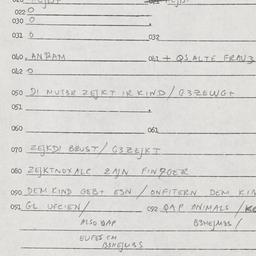 022 O
030 O
031 O 032
040 . ANTAM 041 + QS ALTE FRAU 3
042 O
050 DI MUTER ZEJKT IR KIND / G3ZEWGT
051
060 061
070 ZEJKDI BRUST / G3ZEJKT
080 ZEJKTNOXALC ZAJN FINGGER
090 DEM KIND GEBT ESN / ONFITERN DEM KIN
091 GL UFCIEN / 092 QAP ONIMALS /
ALSO QAP B3HEJMBS /
B3HEJMBS